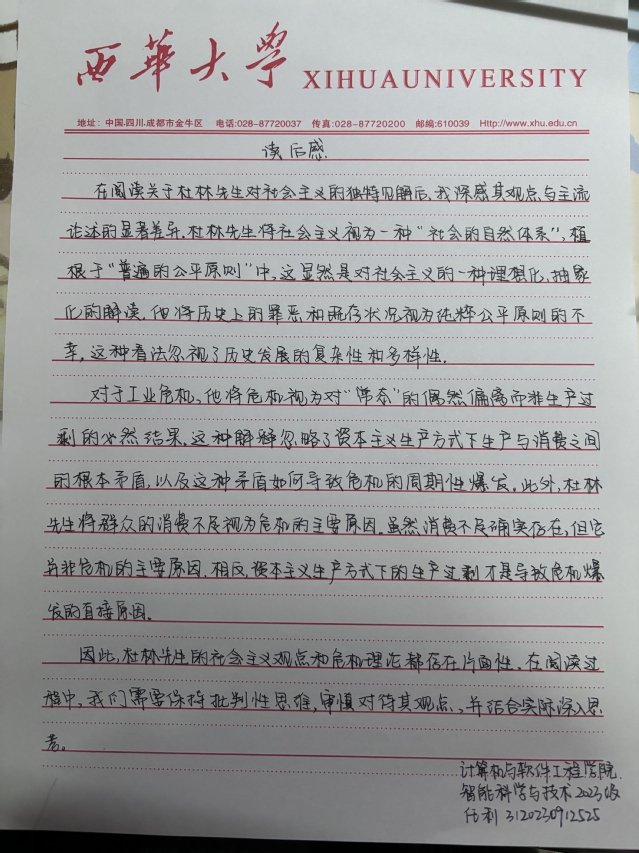 西華大學 XIHUAUNIVERSITY
地址：中国.四川.成都市金牛区 电话:028-87720037 传真:028-87720200 邮编:610039 Http://www.xhu.edu.cn
读后感
在阅读关于杜林先生对社会主义的独特见解后，我深感其观点与主流
论述的显著差异。杜林先生将社会主义视为一种“社会的自然体系”，植
根于“普遍的公平原则”中，这显然是对社会主义的一种理想化、抽象
化的解读。他将历史上的罪恶和既存状况视为纯粹公平原则的不
幸，这种看法忽视了历史发展的复杂性和多样性。
对于工业危机，他将危机视为对“常态”的偶然偏离而非生产过
剩的必然结果。这种解释忽略了资本主义生产方式下生产与消费之间
的根本矛盾，以及这种矛盾如何导致危机的周期性爆发。此外，杜林
先生将群众的消费不足视为危机的主要原因。虽然消费不足确实存在，但它
并非危机的主要原因。相反，资本主义生产方式下的生产过剩才是导致危机爆
发的直接原因。
因此，杜林先生的社会主义观点和危机理论都存在片面性。在阅读过
程中，我们需要保持批判性思维，审慎对待其观点、并结合实际深入思
考。
计算机与软件工程学院
智能科学与技术2023级
3120230912525